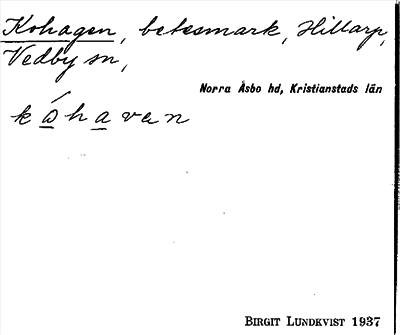 Kohagen, betesmark, Hillarp,
Vedby sn,
Norra Åsbo hd, Kristianstads län
kóhavan
BIRGIT LUNDKVIST 1937